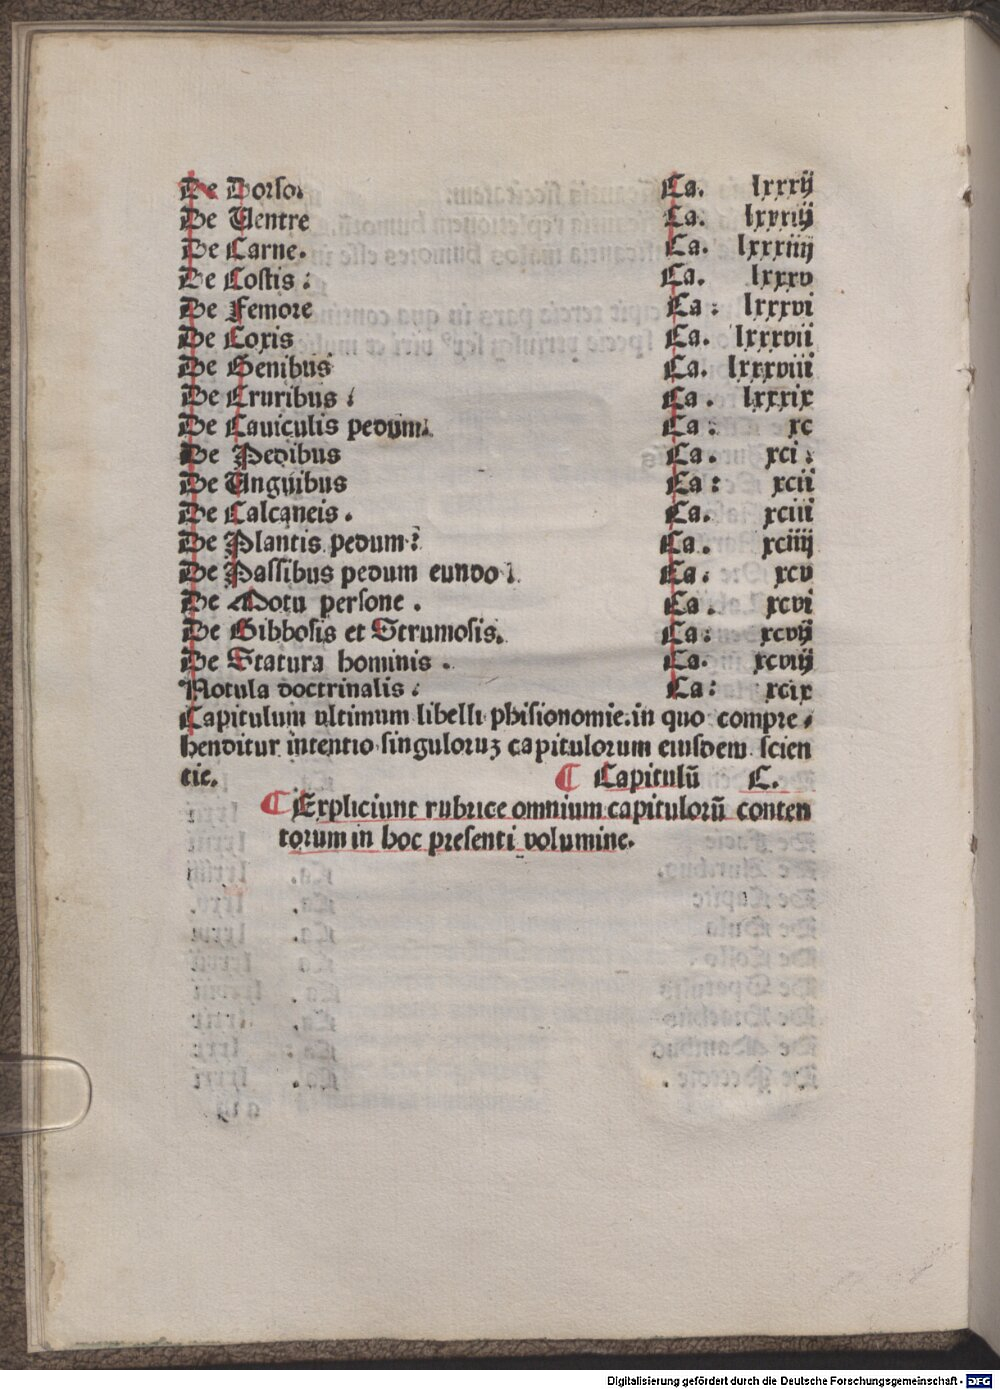 De Dorso. Ca. lxxxij
De Uentre Ca. lxxxiij
De Carne. Ca. lxxxiiij
De Costis : Ca. lxxxv
De Femore Ca : lxxxvi
De Coxis Ca. lxxxvii
De Genibus Ca. lxxxviii
De Cruribus : Ca . lxxxix
De Cauiculis pedum. Ca : xc
De Pedibus Ca . xci :
De Unguibus Ca : xcii
De Calcaneis . Ca. xciii
De Plantis pedum : Ca . xciiij
De Passibus pedum eundo . Ca : xcv
De Motu persone . Ca . xcvi
De Gibbosis et Strumosis. Ca : xcvij
De Statura hominis . Ca. xcviij
Notula doctrinalis : Ca : xcix
Capitulum ultimum libelli phisionomie. in quo compre
henditur intentio singuloruꝫ capitulorum eiusdem scien
tie. ¶ Capitulū C.
¶ Expliciunt rubrice omnium capitulorū conten
torum in hoc presenti volumine.
Digitalisierung gefördert durch die Deutsche Forschungsgemeinschaft - DFG